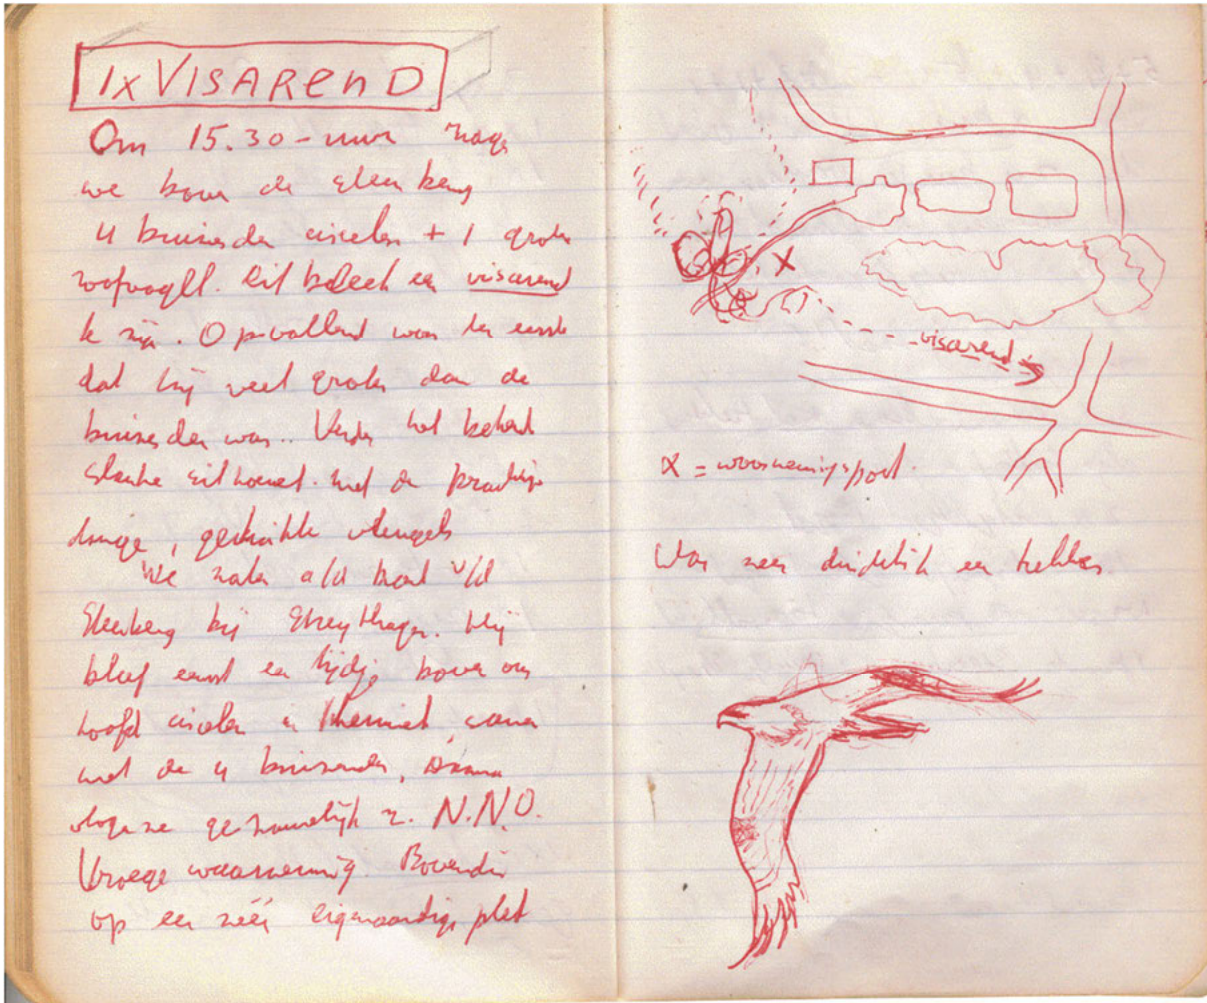 1x VISAREND
Om 15.30-uur zagen
we boven de
4 buizerden cirkelen + 1 grote
roofvogel. Dit bleek een visarend
te zijn. Opvallend was ten eerste
dat hij veel groter dan de
buizerden was.. Verder het bekende
slanke silhouet met de prachtige
lange, geknikte vleugels
We zaten a/d kant v/d
bij
bleef eerst een tijdje boven ons
hoofd cirkelen in thermiek, samen
met de 4 buizerden,
vlogen ze gezamenlijk n. N.N.O.
Vroege waarneming. Bovendien
op een zéér eigenaardige plek
X
visarend
X = waarnemingspost.
Was zeer duidelijk een trekker